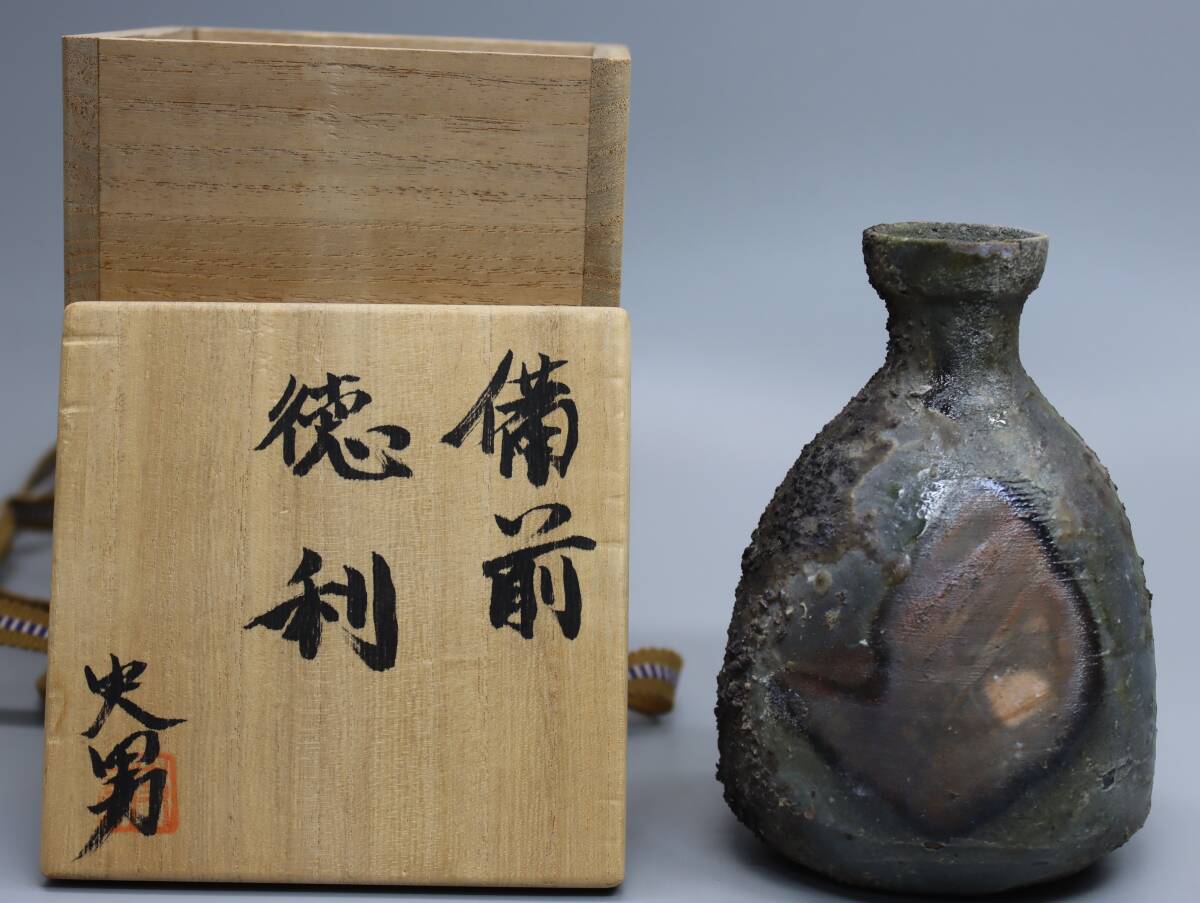 備前
徳利
史男